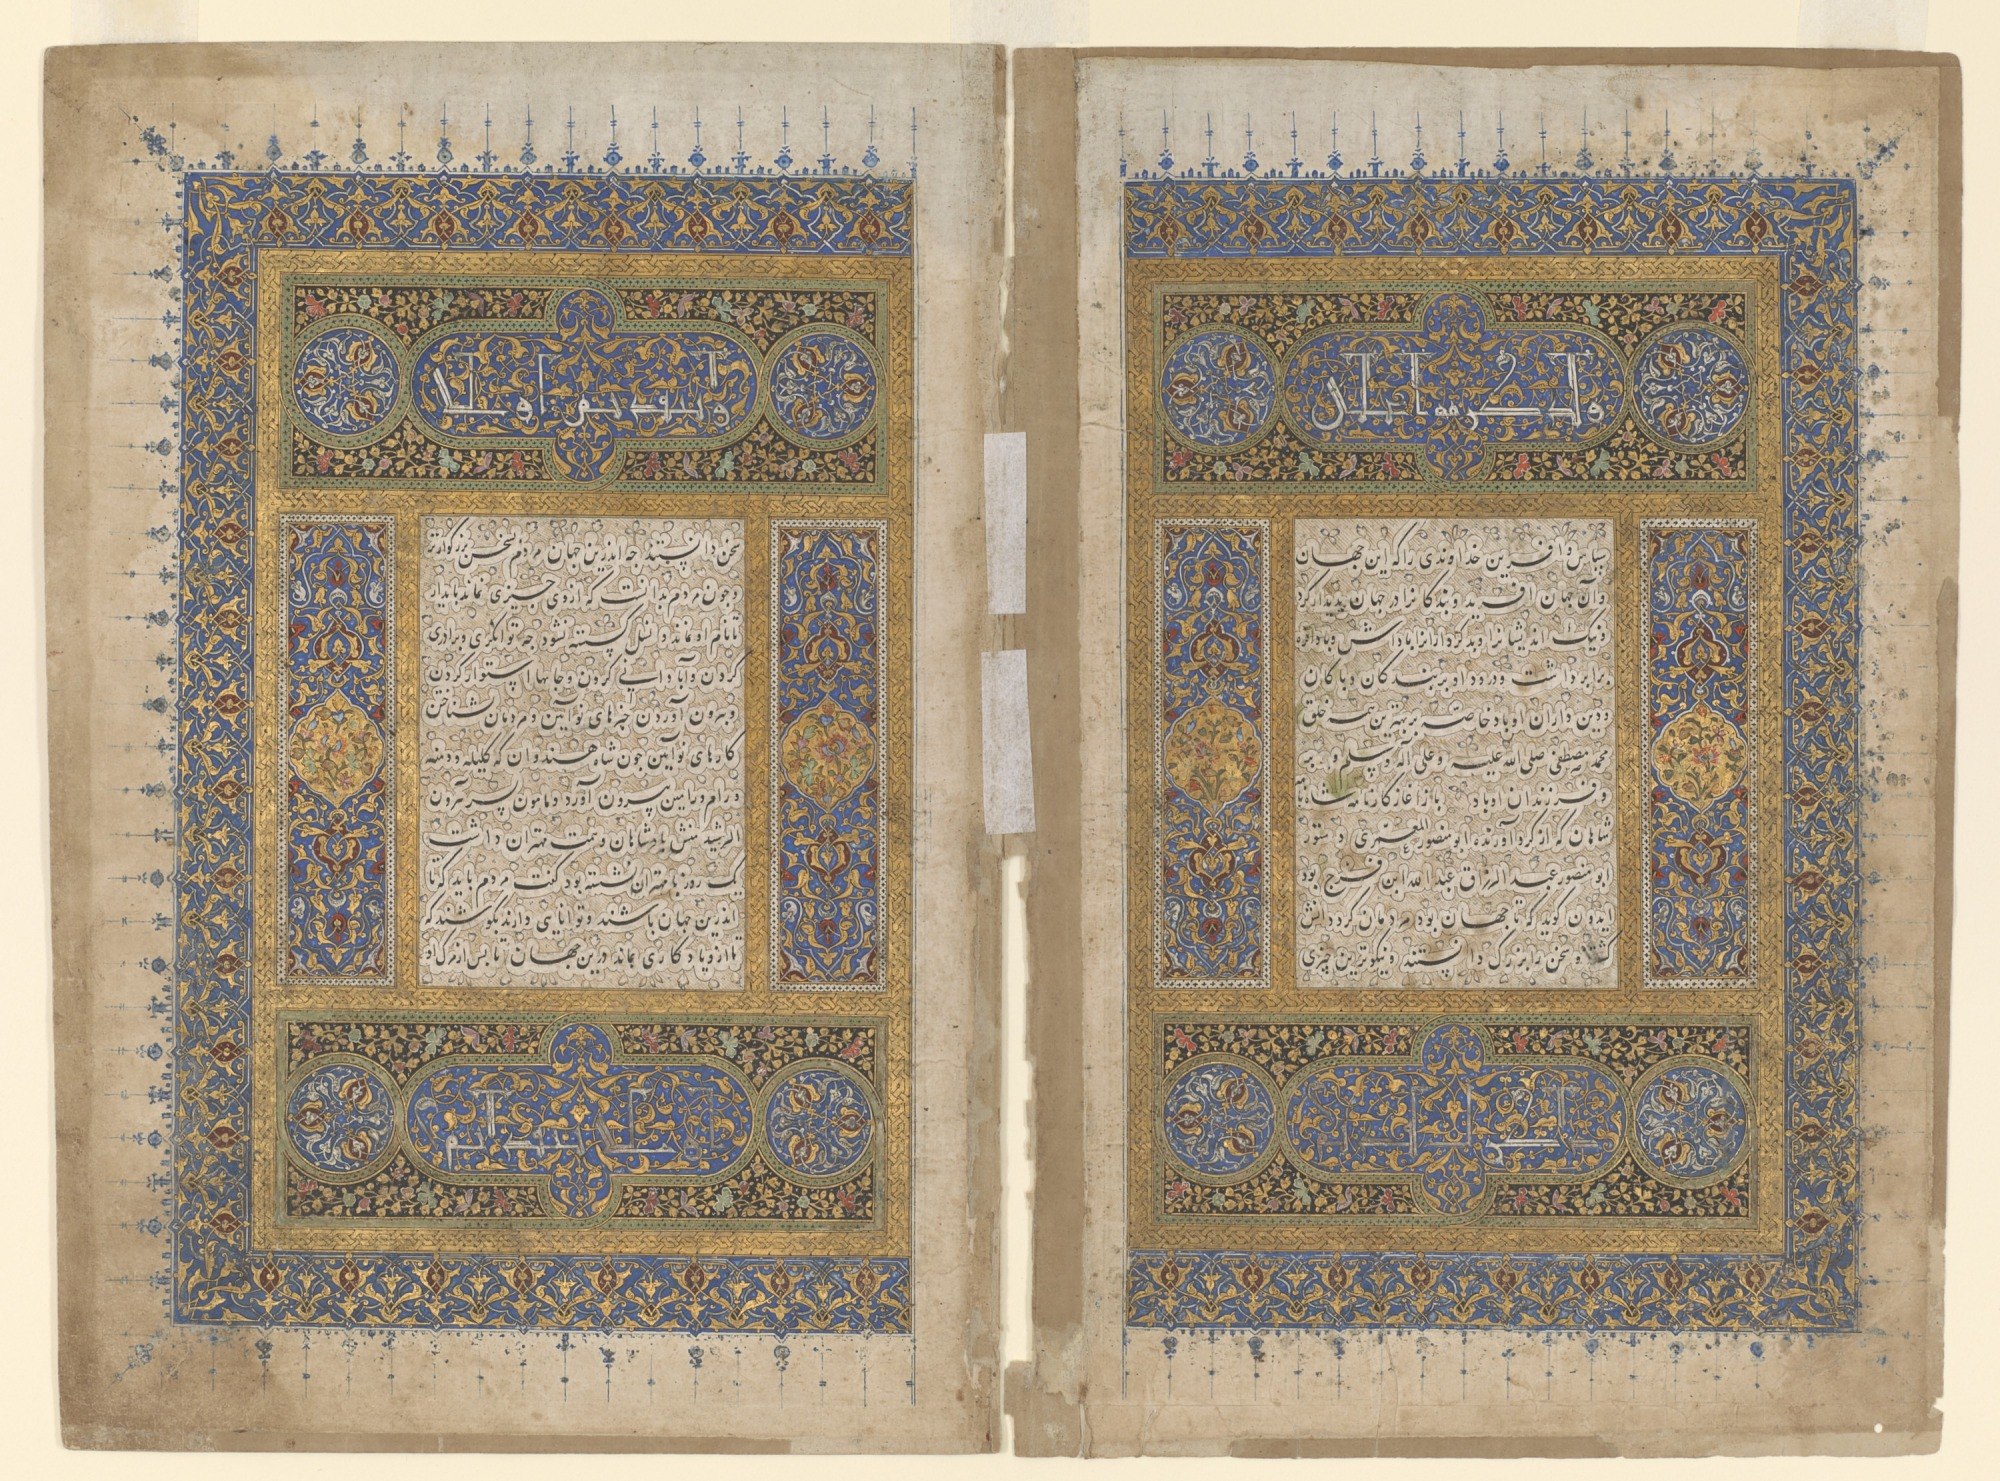 سپاس و افرین خداوندی را که این جهان
و آن جهان افرید و بندکانرا در جهان پدیدار کرد
و نیک اندیشانرا و بدکردارانرا باداش و بادافره
برابر داشت و درود او بر بندکان و باکان
و دین داران او باد خاصه بر بهترین همه خلق
محمد مصطفی صلی الله علیه و علی آله و سلم و
و فرزندان او باد باز اغاز کارنامه
شاهان که از کرد آورنده ابو منصور المعمری دستور
ابو منصور عبد الرزاق عبد الله ابن فرخ بود
ایدون کوید که تا جهان بود مردمان کرد دانش
و سخن را بزرک دانستند و نیکوترین چیزی
سخن دانستند جه اندرین جهان مردم بسخن بزرکوارتر
و جون مردم بدانست که از وی جیزی نماند بایدار
تا نام او بماند و نسل کسسته نشود جه توانکری و
کردن و آبادانی کردن و جایها استوار کردن
و برون آوردن جیزهای نو آیین و مردمان شناختن
کارهای نو آیین جون شاه هندوان که کلیله و دمنه
و رام و رامین بیرون آورد و مامون بسر هرون
الرشید منش بادشاهان و همت مهتران داشت
یک روز با مهتران نشسته بود کفت مردم باید که تا
اندرین جهان باشند و توانایی دارند بکوشند که
تا ازو یادکاری بماند درین جهان تا بس از مرک او